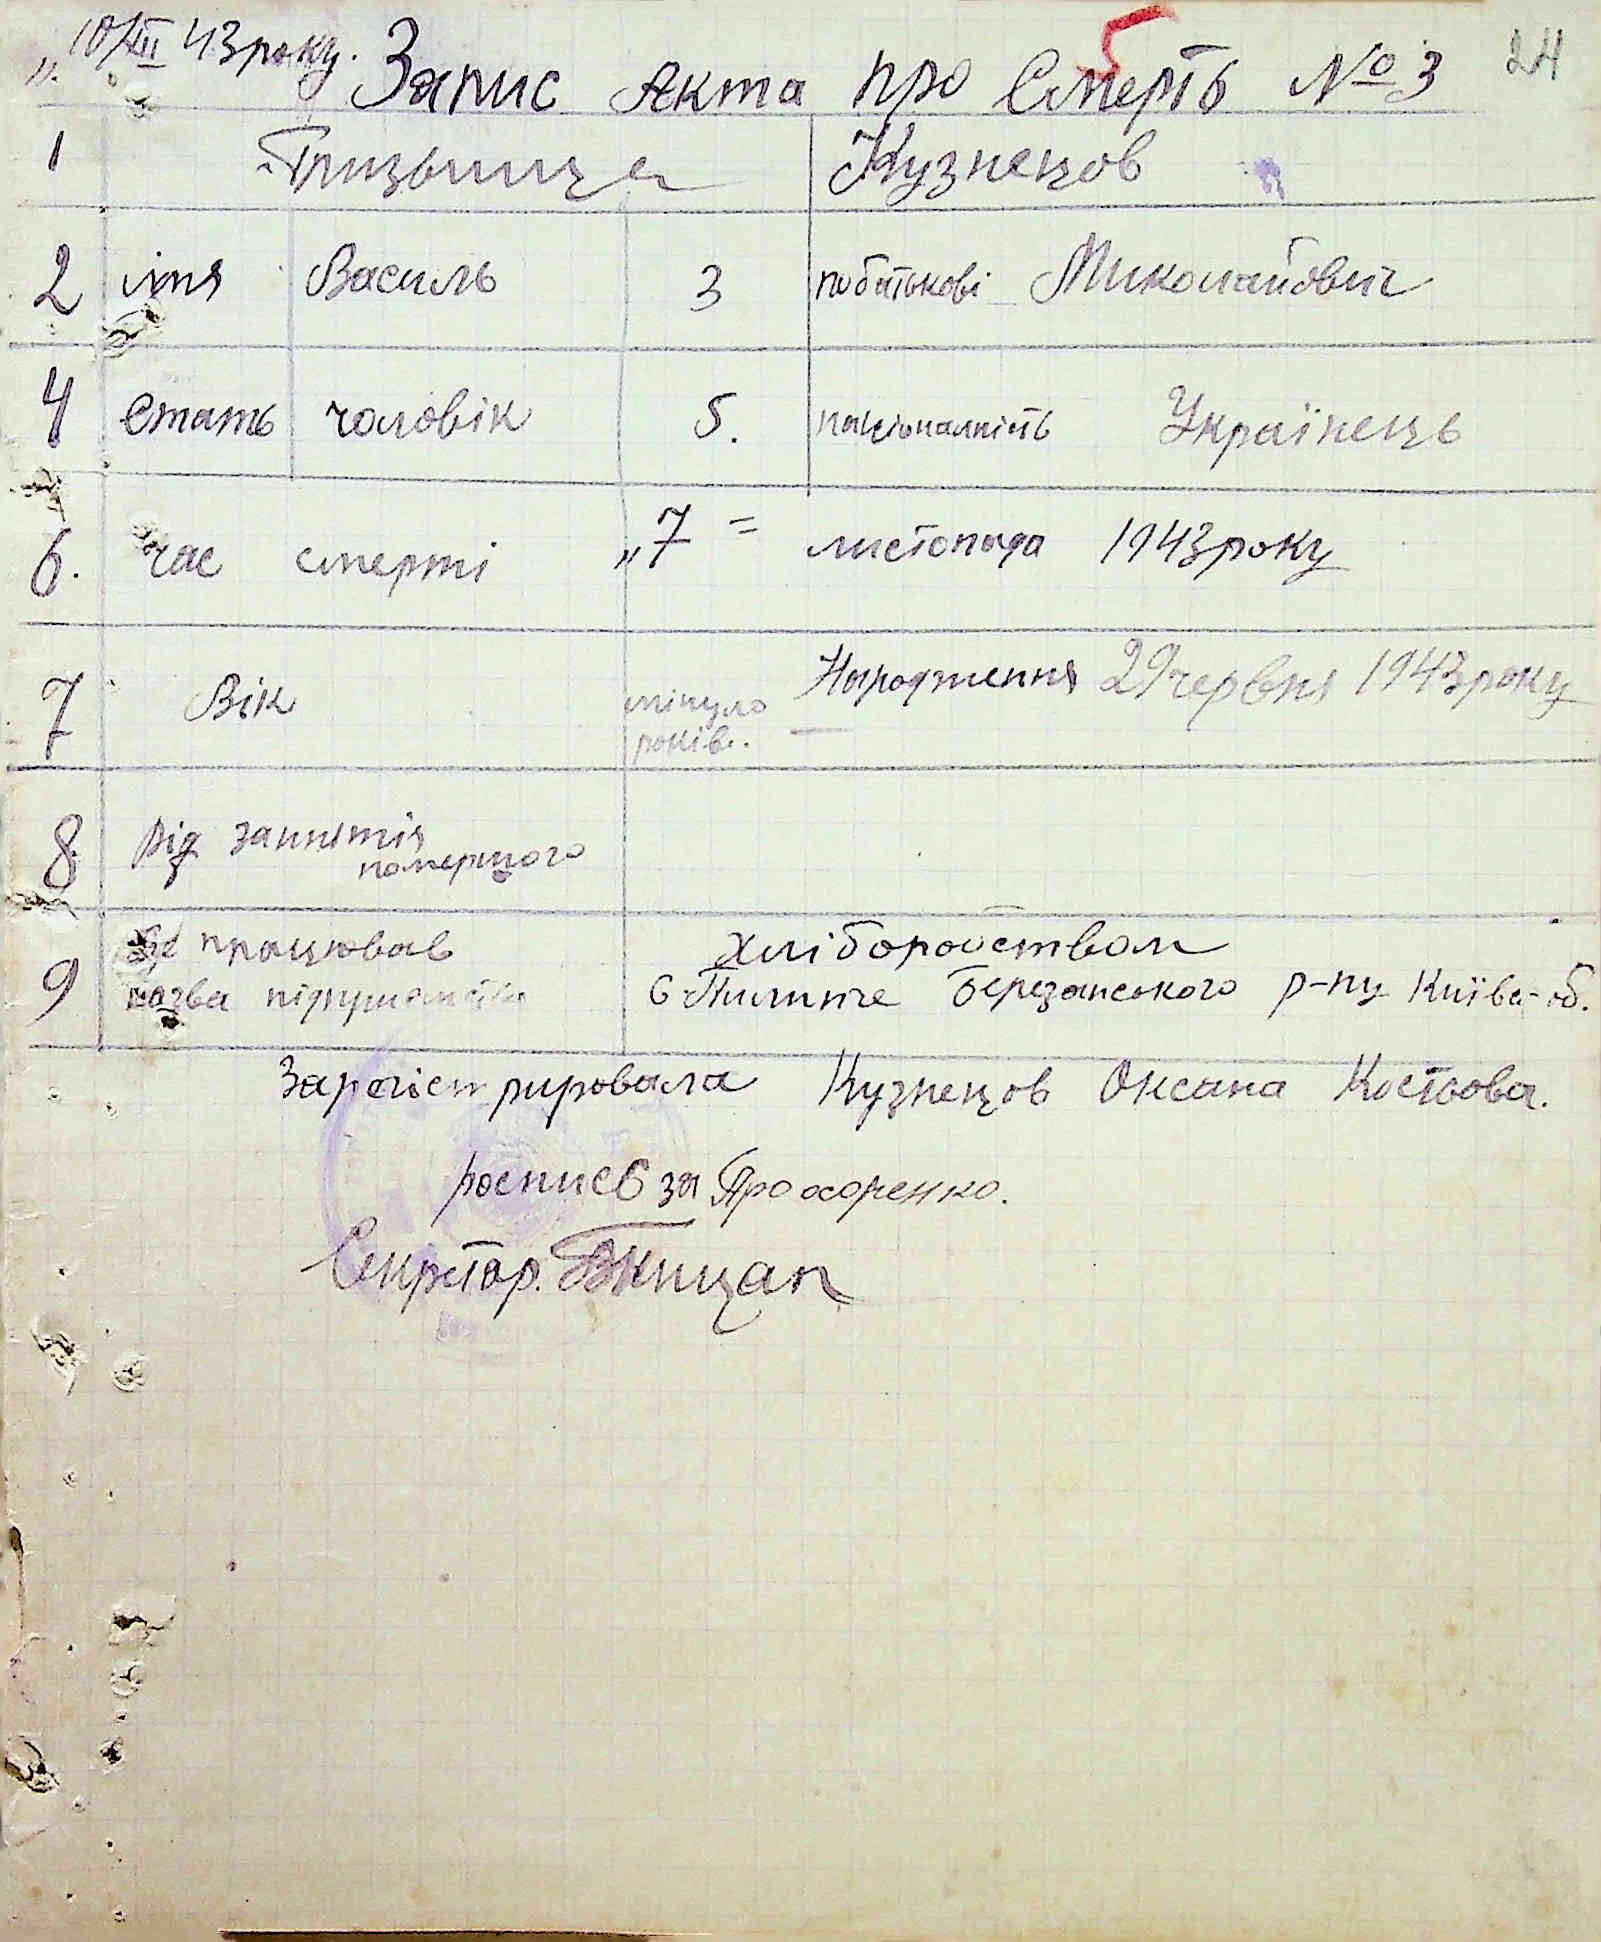 „10/XII 43 року. Запис Акта про Смерть № 3 24
5
1 Призвище Кузнецов
2 імя Василь 3 побатькові Миколайович
4 Стать чоловік 5. національність Українець
6. час смерті „7 = листопада 1943 року
7 Вік мінуло років. — Народження 29 червня 1943 року
8 Від занятія
помершого
9 Де працював хліборобством
назва підприємства с Пилипче Березанського р-ну Київс-об.
Зарегістрировала Кузнецов Оксана Костьова.
росписв за Прохоренко.
Секретар.